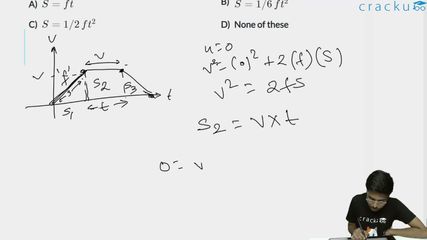 cracku
A) S = ft
B) S = 1/6 ft²
C) S = 1/2 ft²
D) None of these
v
v
v
f
S₂
S₃
S₁
t
t
u=0
v² = (0)² + 2(f)(S)
v² = 2fS
S₂ = v×t
0 = v
cracku